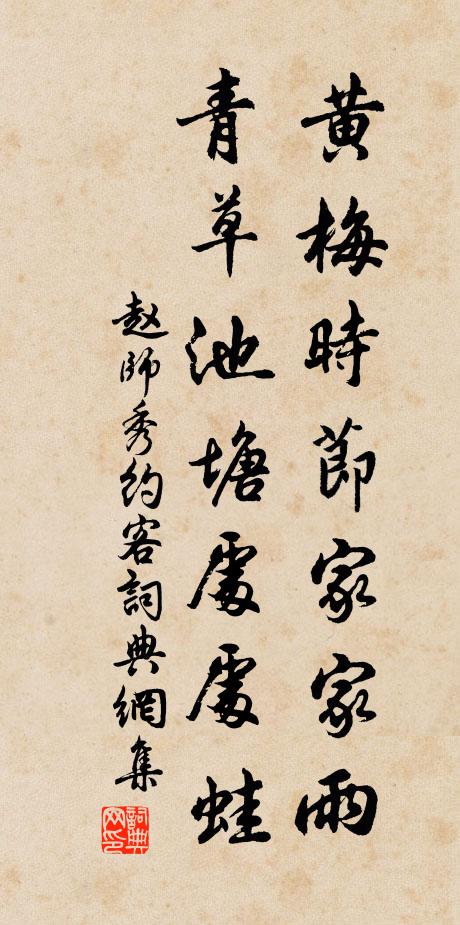 黄梅時節家家雨
青草池塘處處蛙
赵師秀約客詞典網集
詞典网印